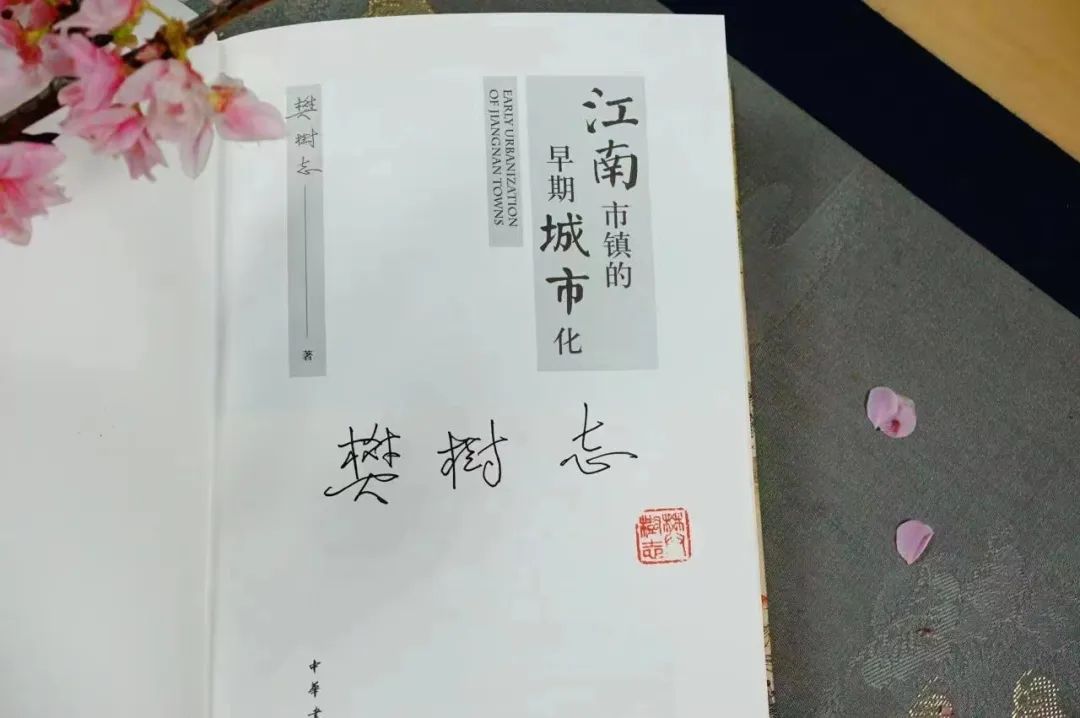 江南市镇的
早期城市化
EARLY URBANIZATION
OF JIANGNAN TOWNS
樊树志
著
樊樹志
樊樹志
中華書